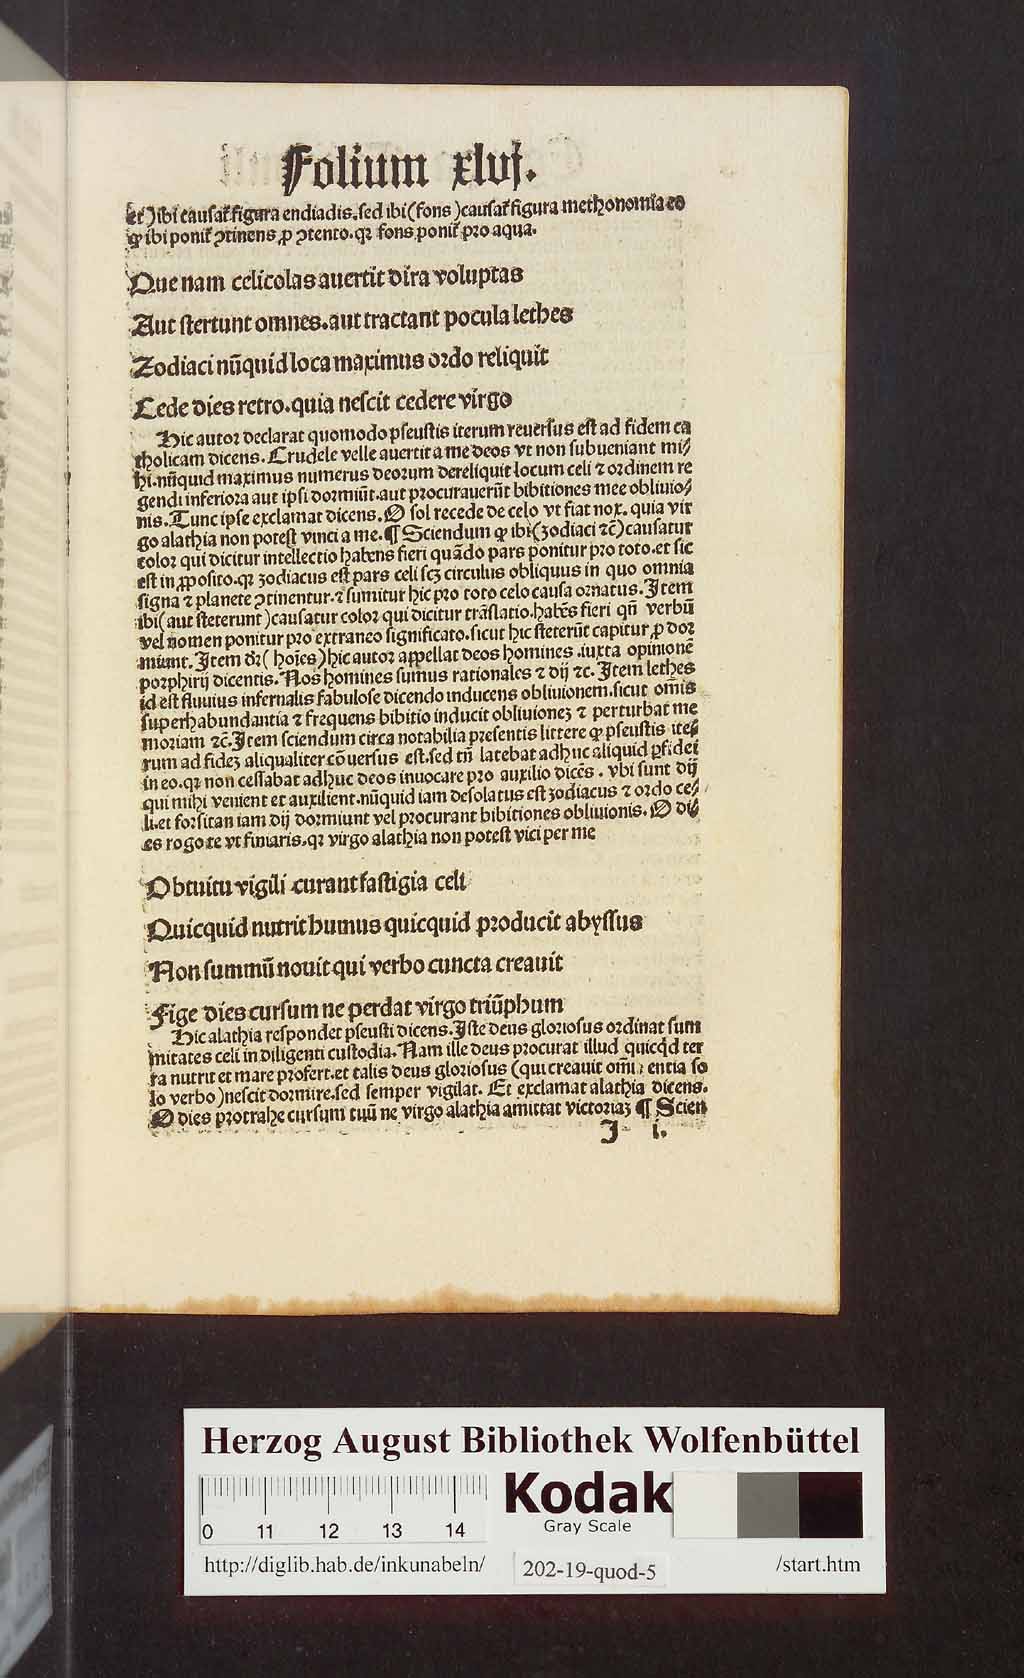 Folium xlvj.
et) ibi causat᷑ figura endiadis. sed ibi (fons) causat᷑ figura methonomia eo
ꝙ ibi ponit᷑ ꝯtinens ꝓ ꝯtento. qꝛ fons ponit᷑ pro aqua.
Que nam celicolas auertit dira voluptas
Aut stertunt omnes. aut tractant pocula lethes
Zodiaci nūquid loca maximus ordo reliquit
Cede dies retro. quia nescit cedere virgo
Hic autor declarat quomodo pseustis iterum reuersus est ad fidem ca
tholicam dicens. Crudele velle auertit a me deos vt non subueniant mi⸗
hi. nūquid maximus numerus deorum dereliquit locum celi ⁊ ordinem re
gendi inferiora aut ipsi dormiūt. aut procurauerūt bibitiones mee obliuio⸗
nis. Tunc ipse exclamat dicens. O sol recede de celo vt fiat nox. quia vir
go alathia non potest vinci a me. ¶ Sciendum ꝙ ibi (zodiaci ⁊c̄) causatur
color qui dicitur intellectio habens fieri quādo pars ponitur pro toto. et sic
est in ꝓposito. qꝛ zodiacus est pars celi scꝫ circulus obliquus in quo omnia
signa ⁊ planete ꝯtinentur. ⁊ sumitur hic pro toto celo causa ornatus. Item
ibi (aut steterunt) causatur color qui dicitur trāslatio. habēs fieri qn̄ verbū
vel nomen ponitur pro extraneo significato. sicut hic steterūt capitur ꝓ dor
miunt. Item dr̄ (hoīes) hic autor appellat deos homines. iuxta opinionē
porphirij dicentis. Nos homines sumus rationales ⁊ dij ⁊c. Item lethes
id est fluuius infernalis fabulose dicendo inducens obliuionem. sicut om̄is
superhabundantia ⁊ frequens bibitio inducit obliuioneꝫ ⁊ perturbat me
moriam ⁊c̄. Item sciendum circa notabilia presentis littere ꝙ pseustis ite⸗
rum ad fideꝫ aliqualiter cōuersus est. sed tn̄ latebat adhuc aliquid ꝑfidei
in eo. qꝛ non cessabat adhuc deos inuocare pro auxilio dicēs. vbi sunt dij
qui mihi venient et auxilient. nūquid iam desolatus est zodiacus ⁊ ordo ce⸗
li. et forsitan iam dij dormiunt vel procurant bibitiones obliuionis. O di⸗
es rogo te vt finiaris. qꝛ virgo alathia non potest vici per me
Obtuitu vigili curant fastigia celi
Quicquid nutrit humus quicquid producit abyssus
Non summū nouit qui verbo cuncta creauit
Fige dies cursum ne perdat virgo triūphum
Hic alathia respondet pseusti dicens. Iste deus gloriosus ordinat sum
mitates celi in diligenti custodia. Nam ille deus procurat illud quicqd ter
ra nutrit et mare profert. et talis deus gloriosus (qui creauit om̄i entia so
lo verbo) nescit dormire. sed semper vigilat. Et exclamat alathia dicens.
O dies protrahe cursum tuū ne virgo alathia amittat victoriaꝫ ¶ Scien
I i.
Herzog August Bibliothek Wolfenbüttel
0 11 12 13 14
Kodak
Gray Scale
http://diglib.hab.de/inkunabeln/ 202-19-quod-5 /start.htm